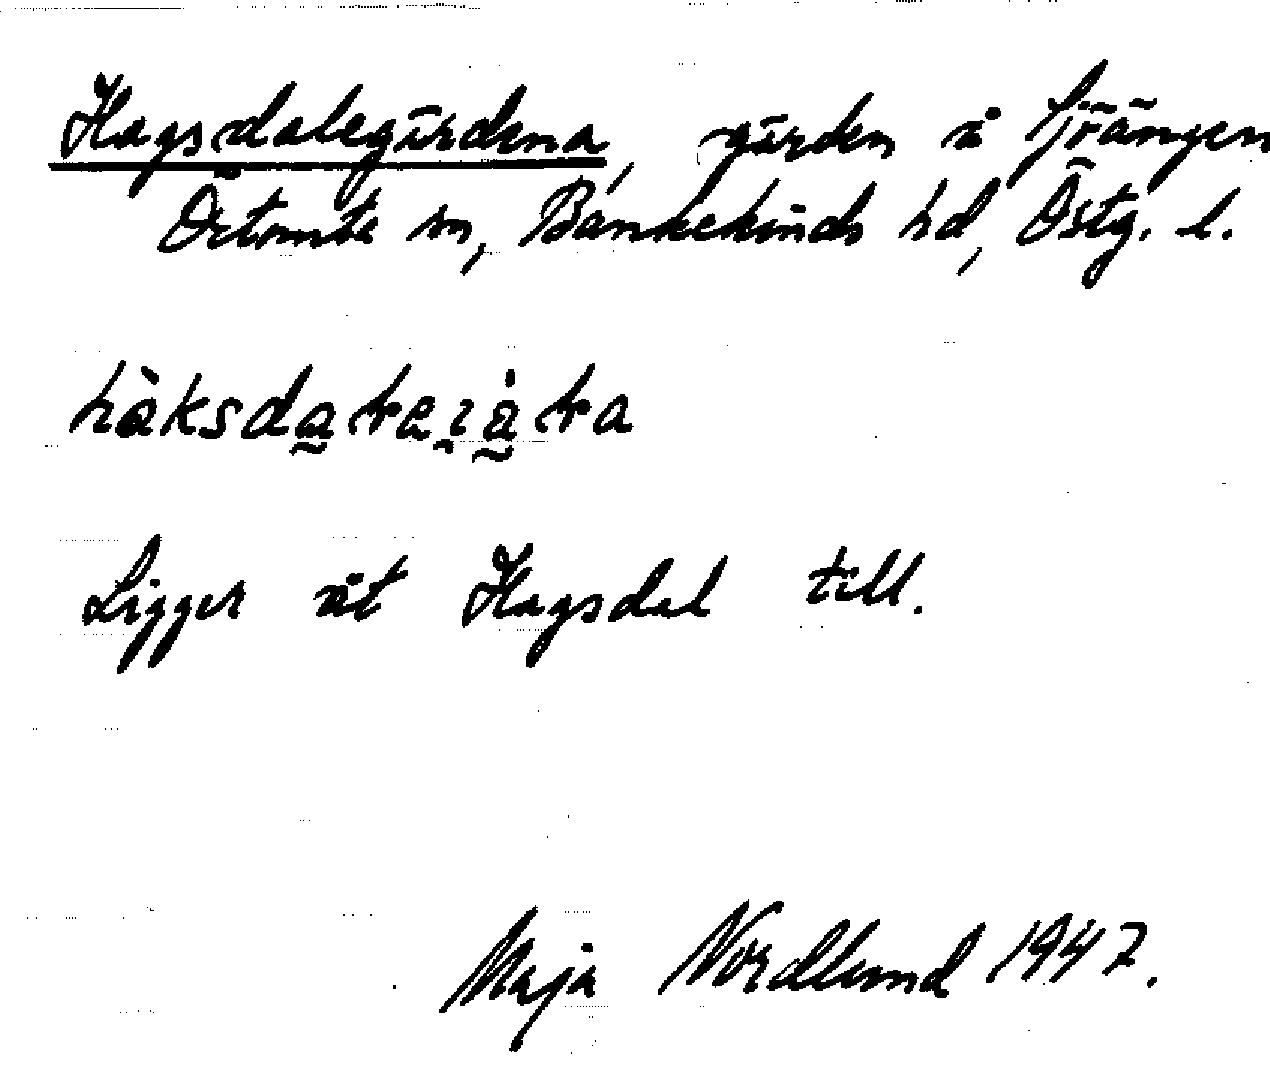 Hagsdalegärdena, gärden å Fjrängen
Örtomta sn, Bankekinds hd, Östg. l.
Ligger åt Hagsdal till.
Maja Nordlund 1947.